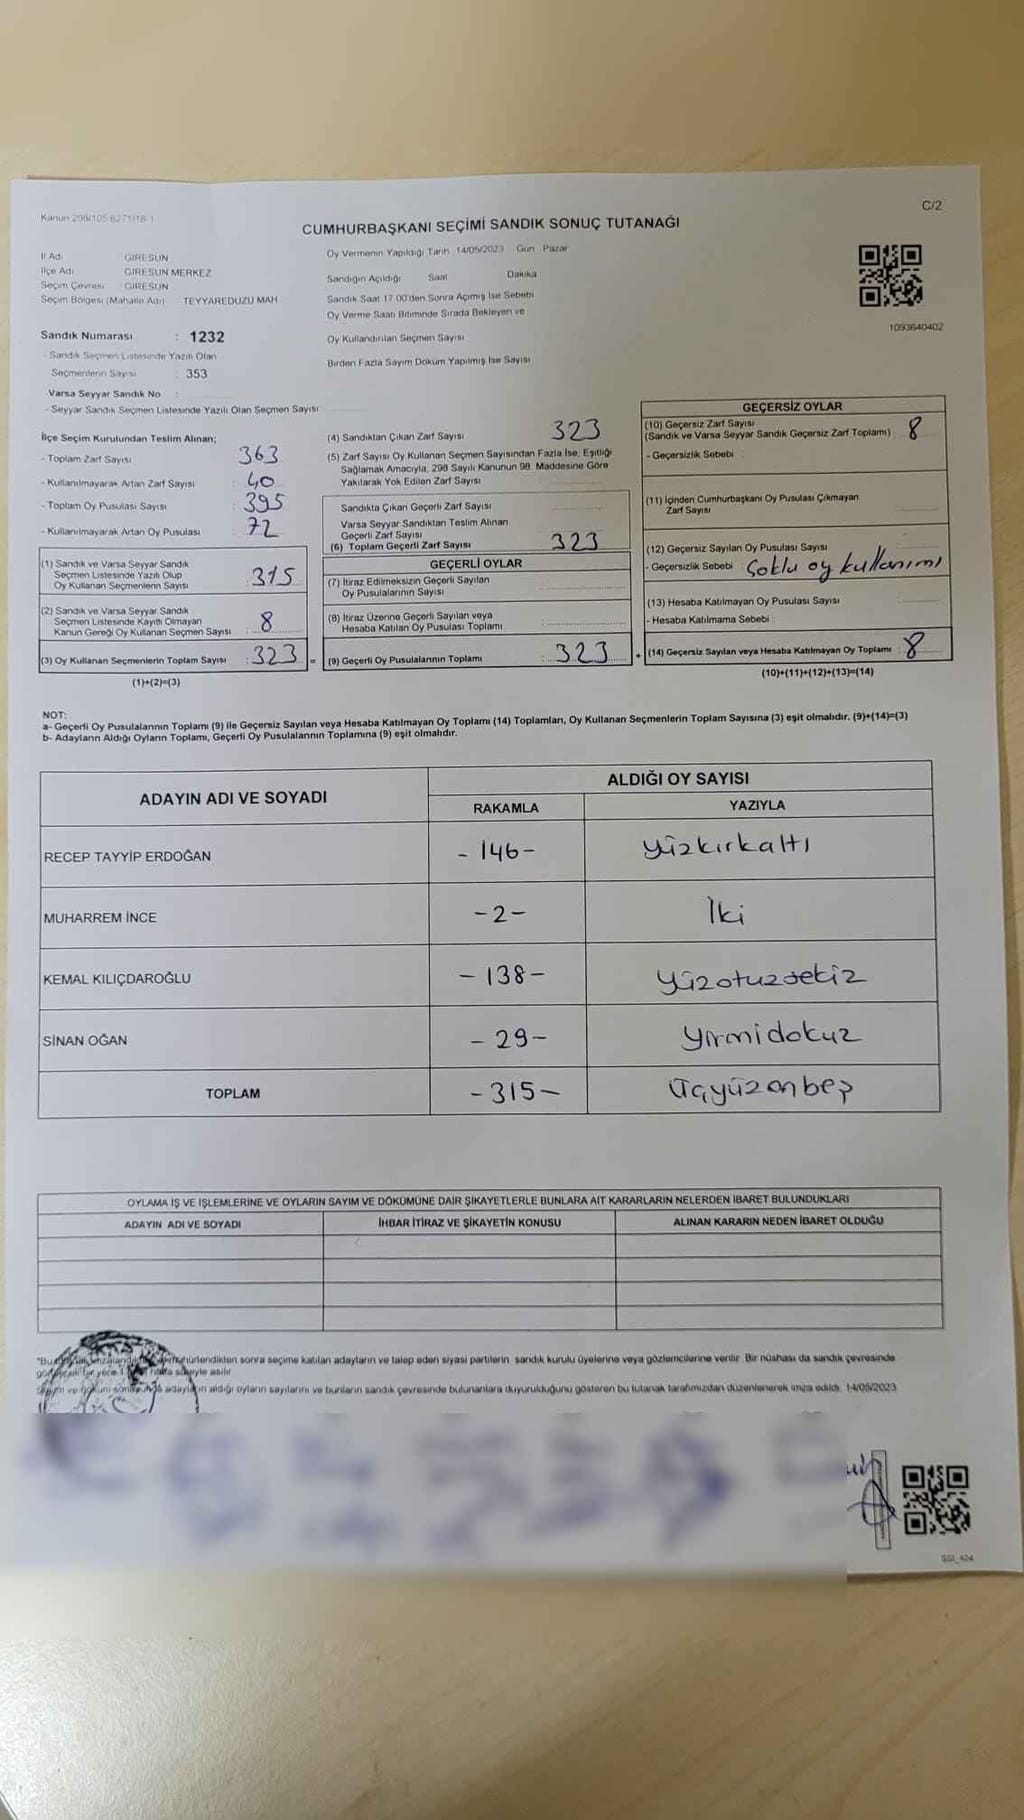 Kanun 298/105-6271/18-1
C/2
CUMHURBAŞKANI SEÇİMİ SANDIK SONUÇ TUTANAĞI
İl Adı GİRESUN
İlçe Adı GİRESUN MERKEZ
Seçim Çevresi : GİRESUN
Seçim Bölgesi (Mahalle Adı) TEYYAREDÜZÜ MAH
Sandık Numarası : 1232
- Sandık Seçmen Listesinde Yazılı Olan
Seçmenlerin Sayısı : 353
Varsa Seyyar Sandık No :
- Seyyar Sandık Seçmen Listesinde Yazılı Olan Seçmen Sayısı
Oy Vermenin Yapıldığı Tarih 14/05/2023 Gün Pazar
Sandığın Açıldığı Saat Dakika
Sandık Saat 17.00'den Sonra Açılmış İse Sebebi
Oy Verme Saati Bitiminde Sırada Bekleyen ve
Oy Kullandırılan Seçmen Sayısı
Birden Fazla Sayım Döküm Yapılmış İse Sayısı
1093640402
İlçe Seçim Kurulundan Teslim Alınan;
- Toplam Zarf Sayısı 363
- Kullanılmayarak Artan Zarf Sayısı 40
- Toplam Oy Pusulası Sayısı 395
- Kullanılmayarak Artan Oy Pusulası 72
(1) Sandık ve Varsa Seyyar Sandık
Seçmen Listesinde Yazılı Olup
Oy Kullanan Seçmenlerin Sayısı : 315
(2) Sandık ve Varsa Seyyar Sandık
Seçmen Listesinde Kayıtlı Olmayan
Kanun Gereği Oy Kullanan Seçmen Sayısı : 8
(3) Oy Kullanan Seçmenlerin Toplam Sayısı : 323 =
(1)+(2)=(3)
(4) Sandıktan Çıkan Zarf Sayısı 323
(5) Zarf Sayısı Oy Kullanan Seçmen Sayısından Fazla İse, Eşitliği
Sağlamak Amacıyla, 298 Sayılı Kanunun 98. Maddesine Göre
Yakılarak Yok Edilen Zarf Sayısı
Sandıkta Çıkan Geçerli Zarf Sayısı
Varsa Seyyar Sandıktan Teslim Alınan
Geçerli Zarf Sayısı
(6) Toplam Geçerli Zarf Sayısı 323
GEÇERLİ OYLAR
(7) İtiraz Edilmeksizin Geçerli Sayılan
Oy Pusulalarının Sayısı
(8) İtiraz Üzerine Geçerli Sayılan veya
Hesaba Katılan Oy Pusulası Toplamı
(9) Geçerli Oy Pusulalarının Toplamı : 323 +
GEÇERSİZ OYLAR
(10) Geçersiz Zarf Sayısı
(Sandık ve Varsa Seyyar Sandık Geçersiz Zarf Toplamı) 8
- Geçersizlik Sebebi
(11) İçinden Cumhurbaşkanı Oy Pusulası Çıkmayan
Zarf Sayısı
(12) Geçersiz Sayılan Oy Pusulası Sayısı
- Geçersizlik Sebebi Çoklu oy kullanımı
(13) Hesaba Katılmayan Oy Pusulası Sayısı
- Hesaba Katılmama Sebebi
(14) Geçersiz Sayılan veya Hesaba Katılmayan Oy Toplamı : 8
(10)+(11)+(12)+(13)=(14)
NOT:
a- Geçerli Oy Pusulalarının Toplamı (9) ile Geçersiz Sayılan veya Hesaba Katılmayan Oy Toplamı (14) Toplamları, Oy Kullanan Seçmenlerin Toplam Sayısına (3) eşit olmalıdır. (9)+(14)=(3)
b- Adayların Aldığı Oyların Toplamı, Geçerli Oy Pusulalarının Toplamına (9) eşit olmalıdır.
ADAYIN ADI VE SOYADI
ALDIĞI OY SAYISI
RAKAMLA YAZIYLA
RECEP TAYYİP ERDOĞAN - 146 - yüzkırkaltı
MUHARREM İNCE - 2 - İki
KEMAL KILIÇDAROĞLU - 138 - yüzotuzsekiz
SİNAN OĞAN - 29 - yirmidokuz
TOPLAM - 315 - üçyüzonbeş
OYLAMA İŞ VE İŞLEMLERİNE VE OYLARIN SAYIM VE DÖKÜMÜNE DAİR ŞİKAYETLERLE BUNLARA AİT KARARLARIN NELERDEN İBARET BULUNDUKLARI
ADAYIN ADI VE SOYADI İHBAR İTİRAZ VE ŞİKAYETİN KONUSU ALINAN KARARIN NEDEN İBARET OLDUĞU
mühürlendikten sonra seçime katılan adayların ve talep eden siyasi partilerin sandık kurulu üyelerine veya gözlemcilerine verilir. Bir nüshası da sandık çevresinde
bir yere 1 hafta süreyle asılır
Sayım ve döküm sonucunda adayların aldığı oyların sayılarını ve bunların sandık çevresinde bulunanlara duyurulduğunu gösteren bu tutanak tarafımızdan düzenlenerek imza edildi. 14/05/2023